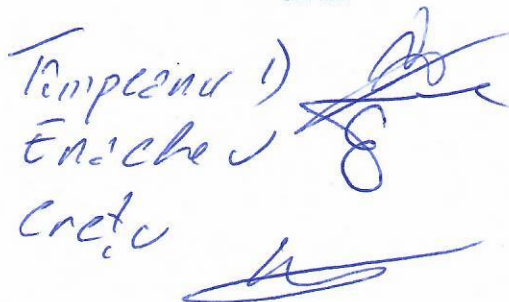 Tâmpeanu D
Enache V
Crețu